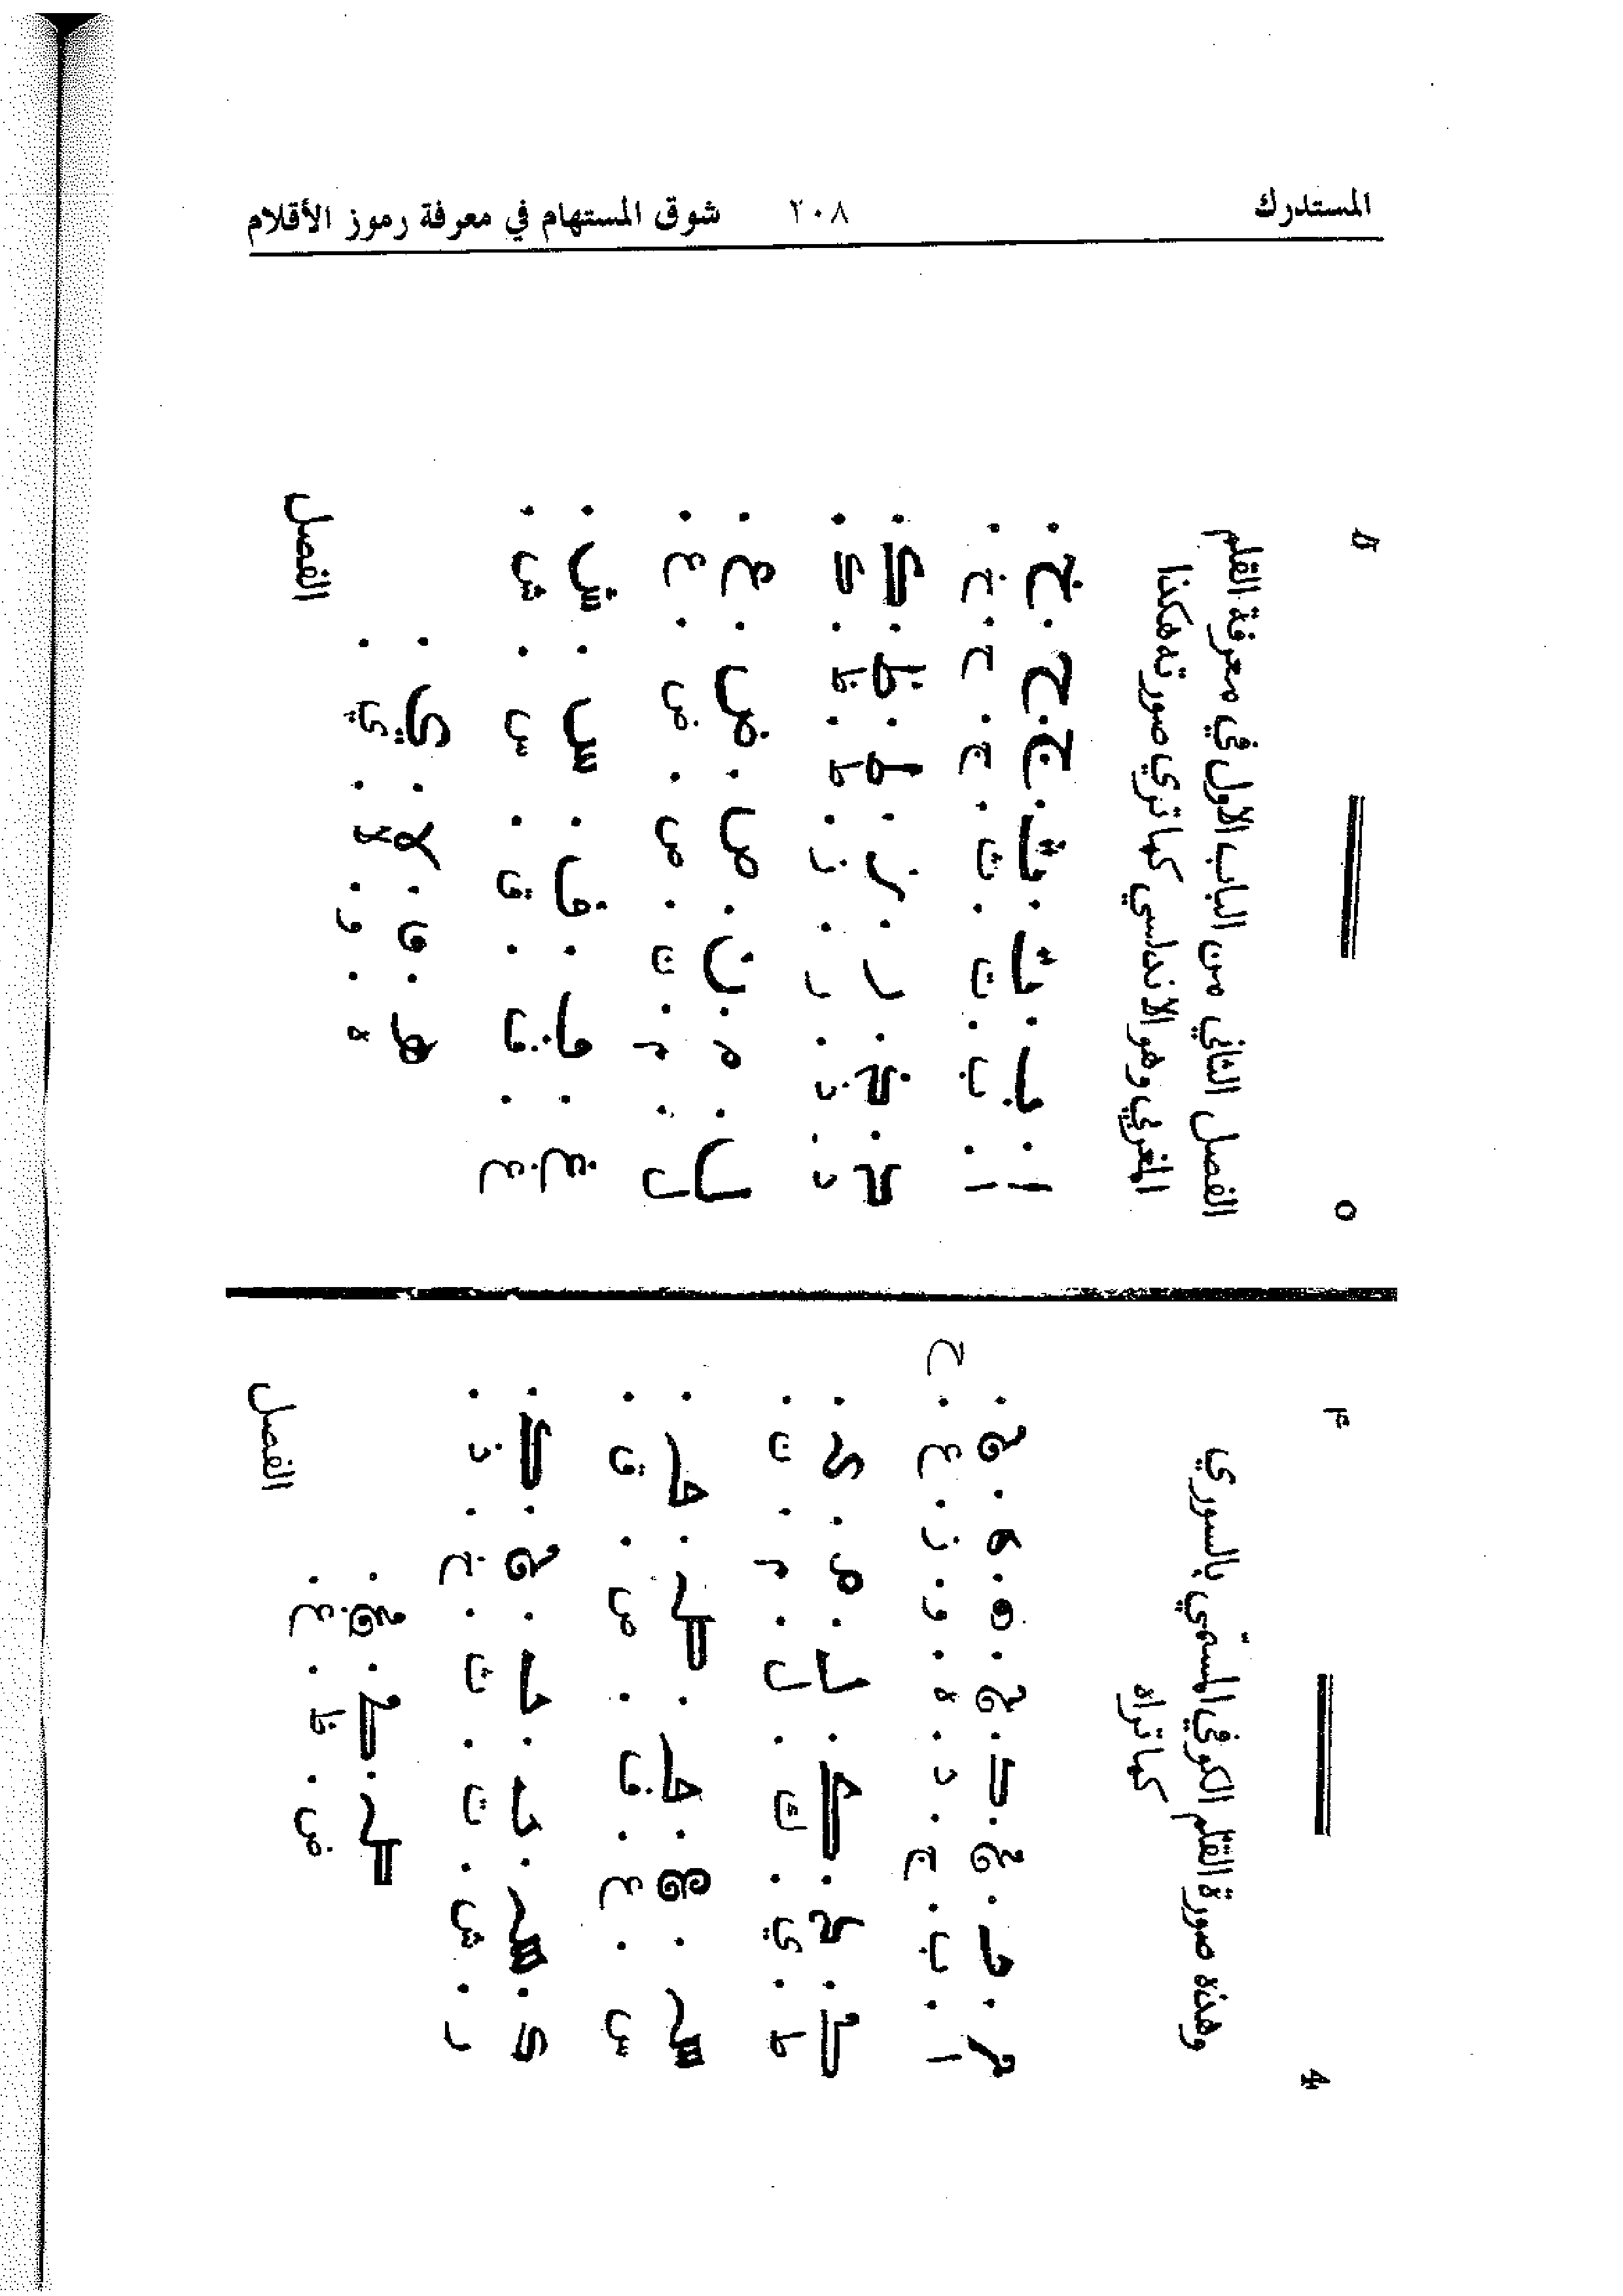 المستدرك ٢٠٨ شوق المستهام في معرفة رموز الأقلام
4
وهذه صورة القلم الكوفي المسمّي بالسوري
كما تراه
ا . ب . ج . د . ه . و . ز . ع . ح
ط . ي . ك . ل . م . ن .
س . ع . ف . ص . ق .
ر . ش . ت . ث . خ . ذ .
ض . ظ . غ .
الفصل
الفصل الثاني من الباب الاول في معرفة القلم
المغربي وهو الاندلسي كما تري صورته هكذا
ا . ب . ت . ث . ج . ح . خ .
ا . ب . ت . ث . ج . ح . خ .
د . ذ . ر . ز . ط . ظ . ك .
د . ذ . ر . ز . ط . ظ . ك .
ل . م . ن . ص . ض . ع .
ل . م . ن . ص . ض . ع .
غ . ف . ق . س . ش .
غ . ف . ق . س . ش .
ه . و . لا . ي .
ه . و . لا . ي .
الفصل